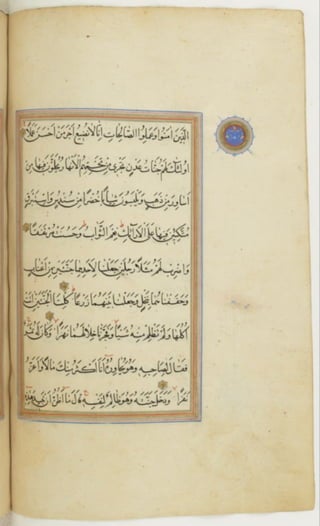 الذين آمنوا وعملوا الصالحات إنا لا نضيع أجر من أحسن عملا
أولئك لهم جنات عدن تجري من تحتهم الأنهار يحلون فيها من
أساور من ذهب ويلبسون ثيابا خضرا من سندس وإستبرق
متكئين فيها على الأرائك نعم الثواب وحسنت مرتفقا
واضرب لهم مثلا رجلين جعلنا لأحدهما جنتين من أعناب
وحففناهما بنخل وجعلنا بينهما زرعا كلتا الجنتين آتت
أكلها ولم تظلم منه شيئا وفجرنا خلالهما نهرا وكان له ثمر
فقال لصاحبه وهو يحاوره أنا أكثر منك مالا وأعز
نفرا ودخل جنته وهو ظالم لنفسه قال ما أظن أن تبيد هذه